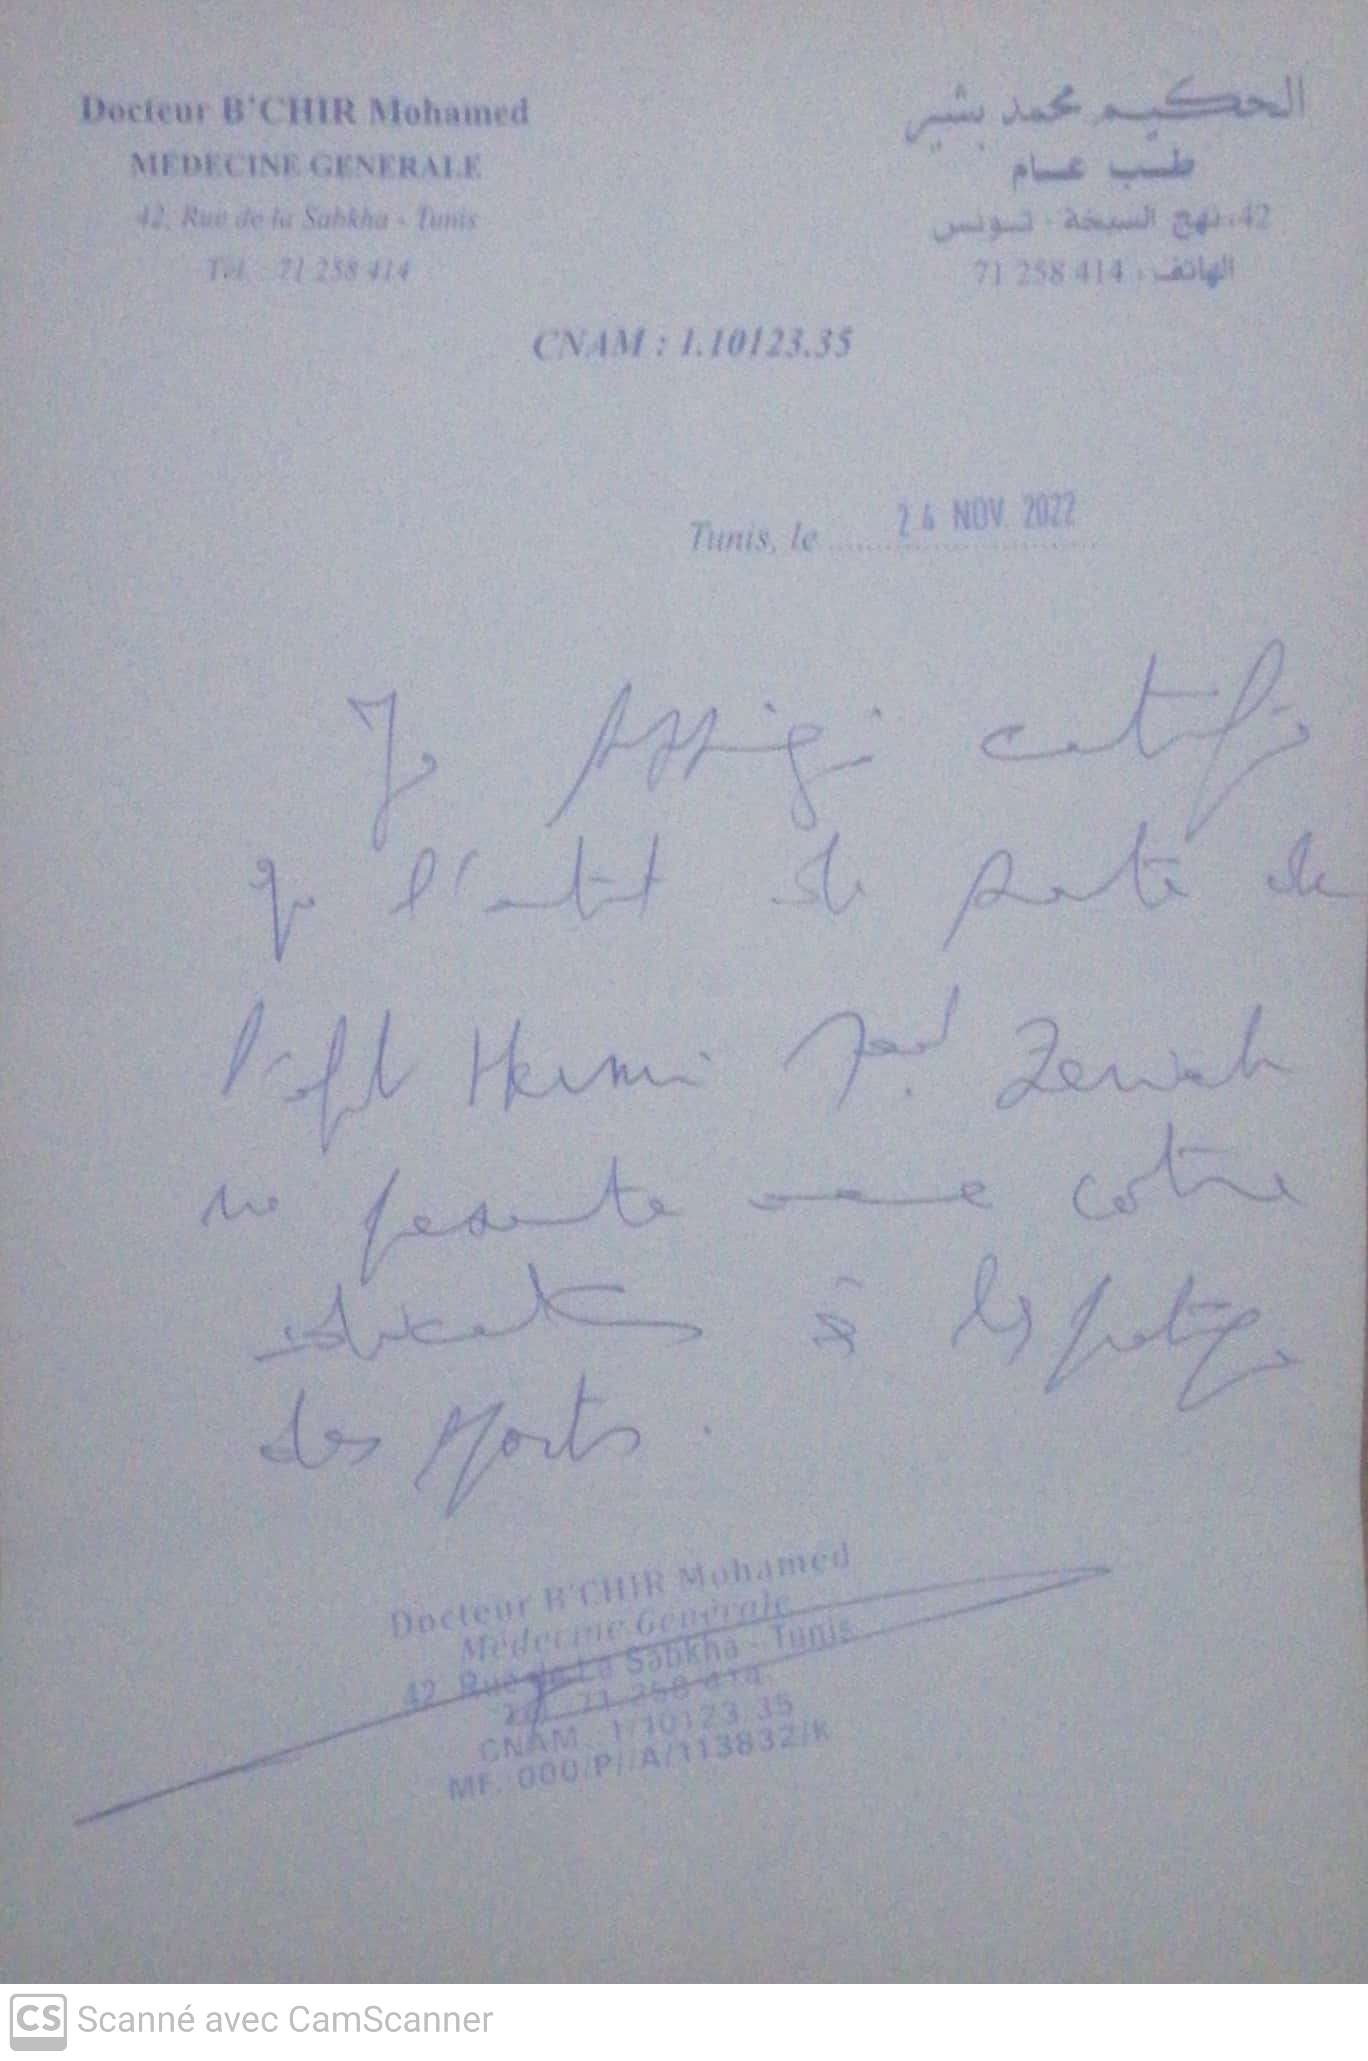 Docteur B'CHIR Mohamed
MEDECINE GENERALE
42, Rue de la Sabkha - Tunis
Tél. : 71 258 414
الحكيم محمد بشير
طب عام
42، نهج السبخة - تونس
الهاتف : 414 258 71
CNAM : 1.10123.35
Tunis, le NOV 2022
Je soussigné certifie
que l'état de santé de
Hermi Zeineb
ne présente contre
à la pratique
des sports.
Docteur B'CHIR Mohamed
Médecine Générale
42 Rue de La Sabkha - Tunis
Tél. 71 258 414
CNAM 1/10123 35
MF. 000/P//A/113832/K
CS Scanné avec CamScanner